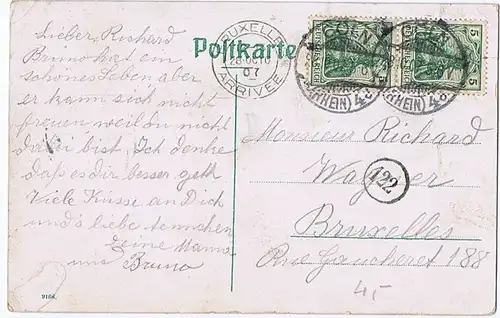 Lieber Richard
Bruno hat ein
schönes Leben aber
er kann sich nicht
freuen weil du nicht
dabei bist. Ich denke
daß es dir besser geth
Viele Küsse an Dich
und's liebe
Deine Mama
und Bruno
Postkarte
BRUXELLES
07
ARRIVÉE
5 5
(RHEIN) (RHEIN)
Monsieur Richard
Wagner
122
Bruxelles
Rue Gaucheret 188
45,-
9168.